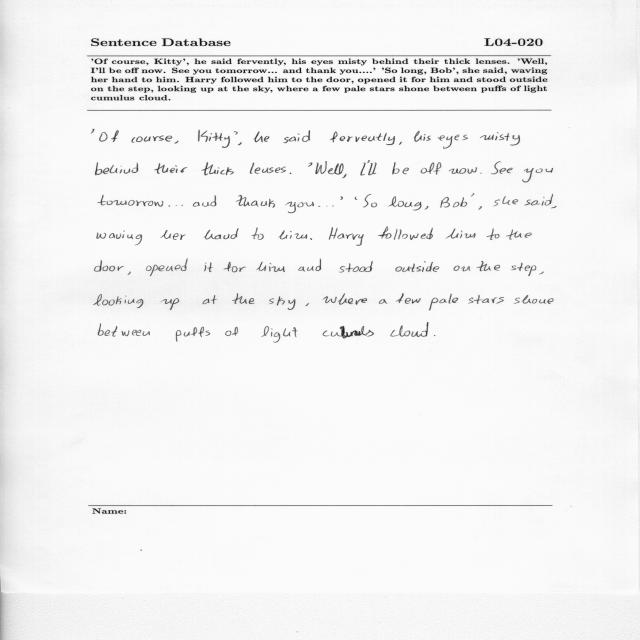 Sentence Database L04-020
'Of course, Kitty', he said fervently, his eyes misty behind their thick lenses. 'Well,
I'll be off now. See you tomorrow... and thank you....' 'So long, Bob', she said, waving
her hand to him. Harry followed him to the door, opened it for him and stood outside
on the step, looking up at the sky, where a few pale stars shone between puffs of light
cumulus cloud.
'Of course, Kitty', he said fervently, his eyes misty
behind their thick lenses. 'Well, I'll be off now. See you
tomorrow... and thank you...' 'So long, Bob', she said,
waving her hand to him. Harry followed him to the
door, opened it for him and stood outside on the step,
looking up at the sky, where a few pale stars shone
between puffs of light cloud.
Name: